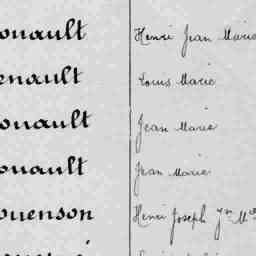 ouault Henri Jean Marie
enault Louis Marie
ouault Jean Marie
ouault Jean Marie
ouenson Henri Joseph Jn M